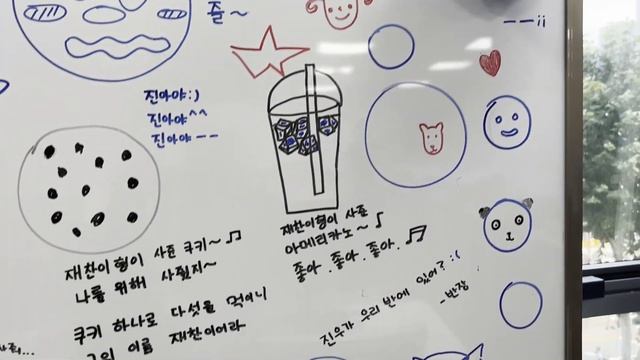 즐~
--;;
진아야:)
진아야^^
진아야--
재찬이형이 사준 쿠키~♫
나를 위해 사줬지~
쿠키 하나로 다섯을 먹이니
그의 이름 재찬이어라
재찬이형이 사준
아메리카노~♪
좋아. 좋아. 좋아. ♫
진우가 우리 반에 있어? :(
-반장